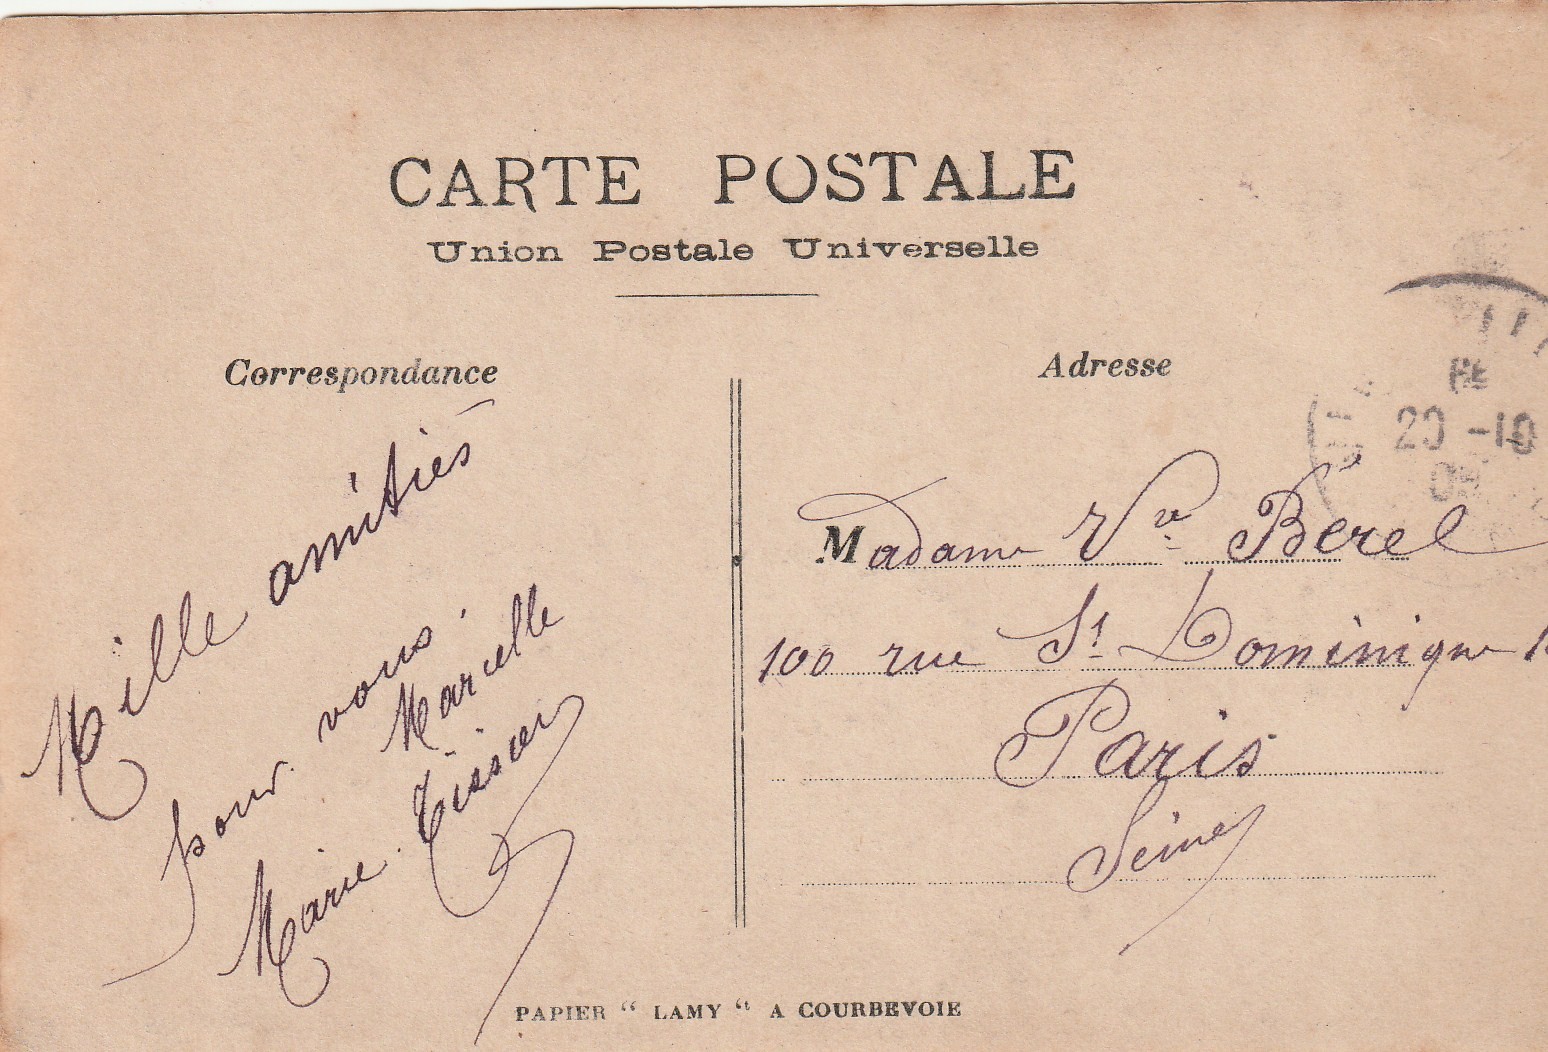 CARTE POSTALE
Union Postale Universelle
Correspondance
Mille amitiés
pour vous.
Marcelle
Marie Tissier
Adresse
Madame Vve Bérel
100 rue St Dominique
Paris
Seine
20 -10
PAPIER “ LAMY “ A COURBEVOIE